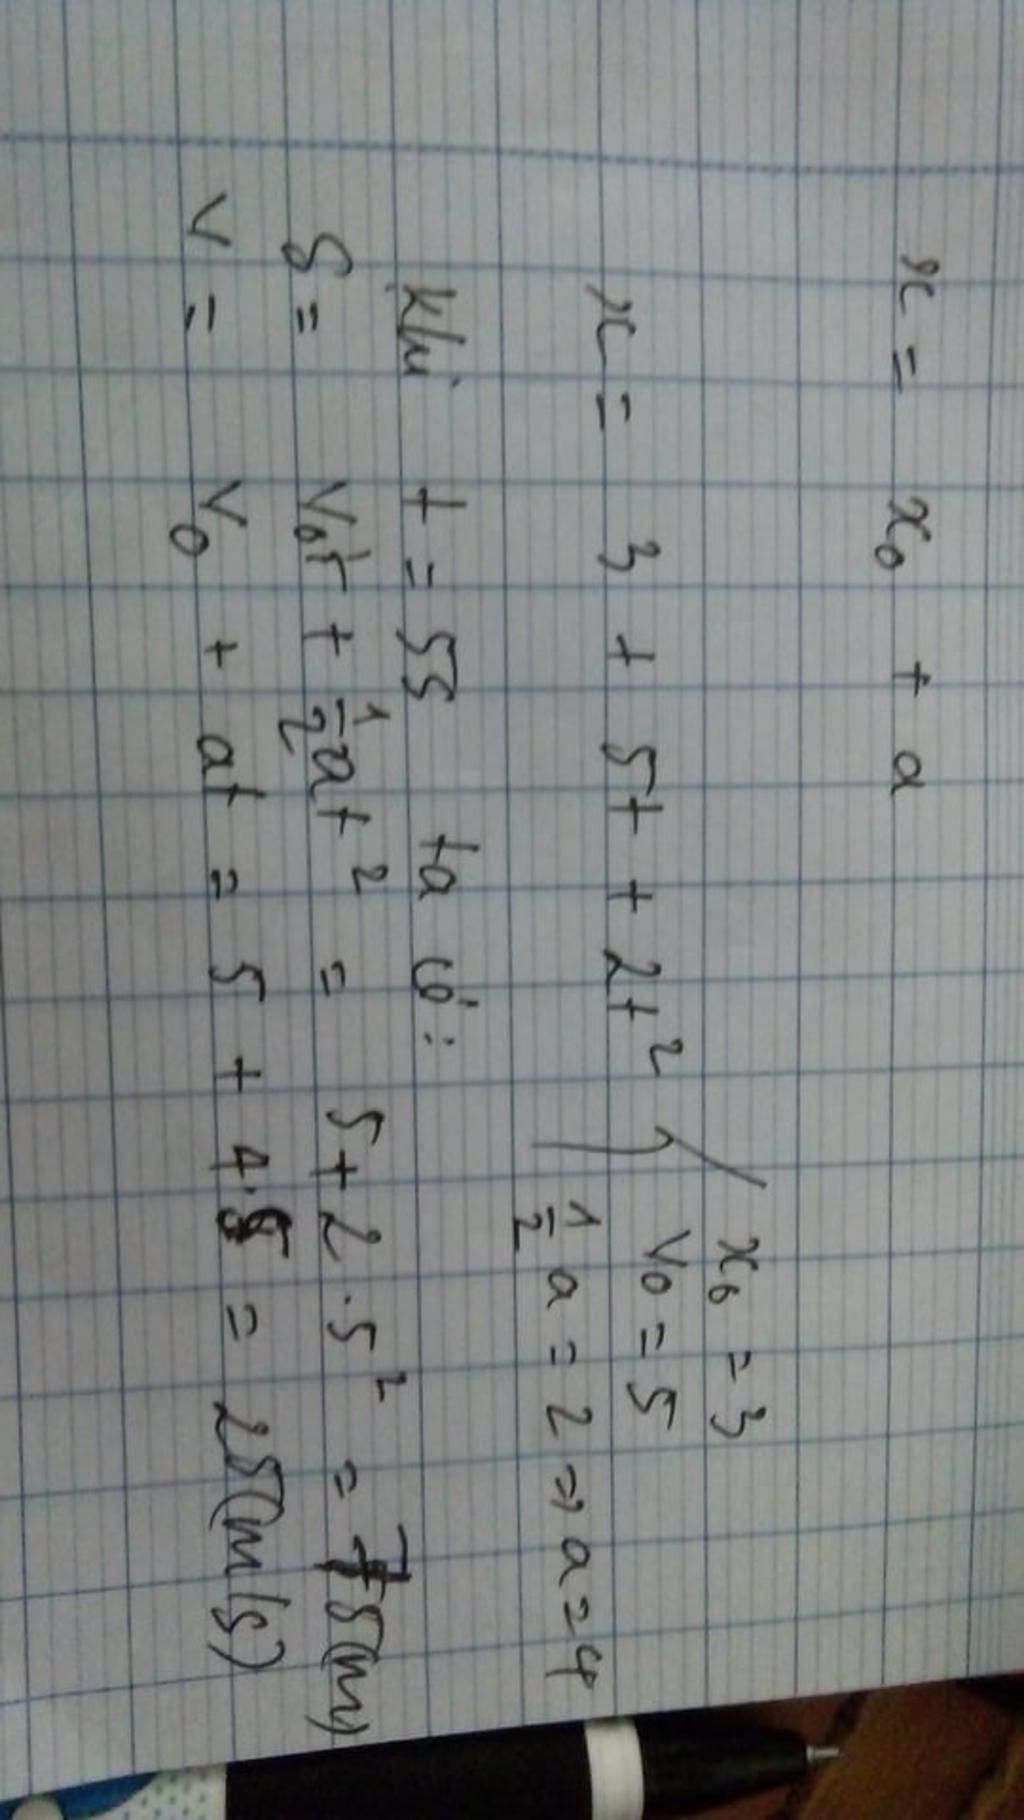 x = x₀ + a
x = 3 + 5t + 2t²
x₀ = 3
v₀ = 5
1/2 a = 2 => a = 4
khi t = 5s ta có:
S = v₀t + 1/2 at² = 5 + 2.5² = 75(m)
v = v₀ + at = 5 + 4.5 = 25(m/s)